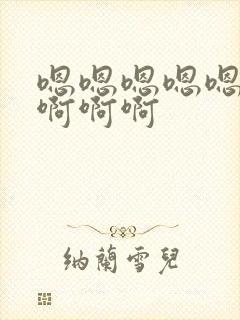 嗯嗯嗯嗯嗯
啊啊啊
纳蘭雪兒